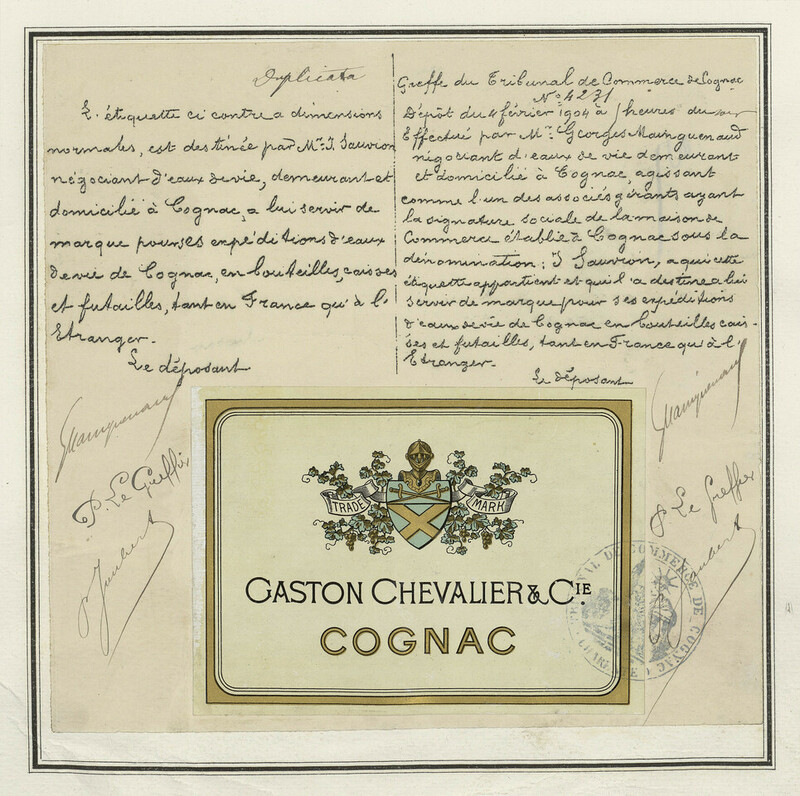 Duplicata
L'étiquette ci contre a dimensions
normales, est destinée par Mr. J. Sauvion
négociant d'eaux de vie, demeurant et
domicilié à Cognac, a lui servir de
marque pour ses expéditions d'eaux
de vie de Cognac, en bouteilles, caisses
et futailles, tant en France qu'à l'
Etranger.
Le déposant
Mainguenaud
P. Le Greffier
Joubert
Greffe du Tribunal de Commerce de Cognac
No. 4231
Dépôt du 4 février 1904 à heures du soir
Effectué par Mr. Georges Mainguenaud
négociant d'eaux de vie demeurant
et domicilié à Cognac, agissant
comme l'un des associés gérants ayant
la signature sociale de la maison de
Commerce établie à Cognac sous la
dénomination: J. Sauvion, a qui cette
étiquette appartient et qu'il a destinée a lui
servir de marque pour ses expéditions
d'eaux de vie de Cognac en bouteilles cais-
ses et futailles, tant en France qu'à l'
Etranger.
Le déposant
Mainguenaud
P Le Greffier
Joubert
TRADE MARK
GASTON CHEVALIER & CIE.
COGNAC
TRIBUNAL DE COMMERCE DE COGNAC
CHARENTE